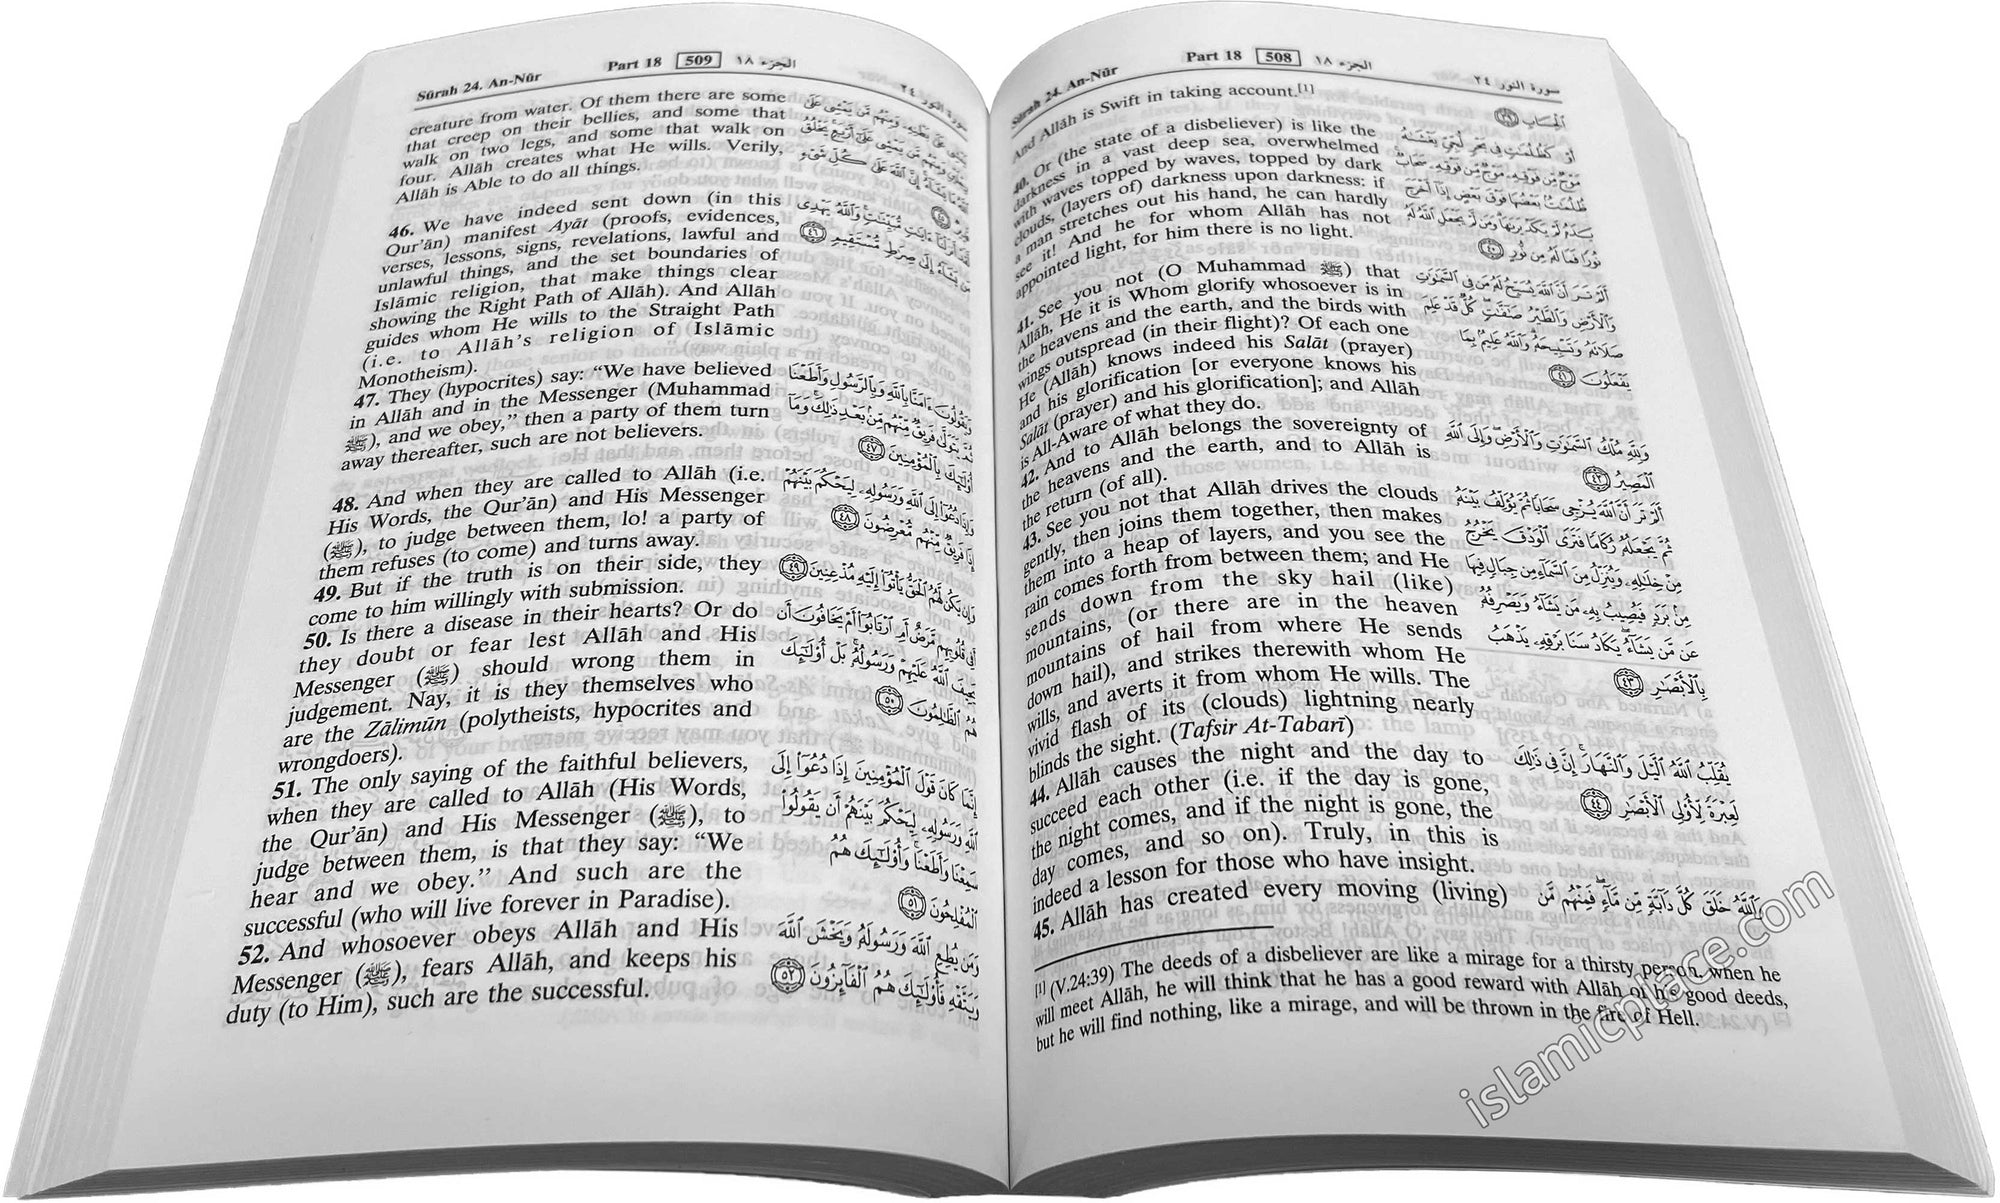 Sūrah 24. An-Nūr Part 18 508 الجزء ١٨ سورة النور ٢٤
And Allāh is Swift in taking account.[1]
40. Or (the state of a disbeliever) is like the
darkness in a vast deep sea, overwhelmed
with waves topped by waves, topped by dark
clouds, (layers of) darkness upon darkness: if
a man stretches out his hand, he can hardly
see it! And he for whom Allāh has not
appointed light, for him there is no light.
41. See you not (O Muhammad ﷺ) that
Allāh, He it is Whom glorify whosoever is in
the heavens and the earth, and the birds with
wings outspread (in their flight)? Of each one
He (Allāh) knows indeed his Salāt (prayer)
and his glorification [or everyone knows his
Salāt (prayer) and his glorification]; and Allāh
is All-Aware of what they do.
42. And to Allāh belongs the sovereignty of
the heavens and the earth, and to Allāh is
the return (of all).
43. See you not that Allāh drives the clouds
gently, then joins them together, then makes
them into a heap of layers, and you see the
rain comes forth from between them; and He
sends down from the sky hail (like)
mountains, (or there are in the heaven
mountains of hail from where He sends
down hail), and strikes therewith whom He
wills, and averts it from whom He wills. The
vivid flash of its (clouds) lightning nearly
blinds the sight. (Tafsir At-Tabarī)
44. Allāh causes the night and the day to
succeed each other (i.e. if the day is gone,
the night comes, and if the night is gone, the
day comes, and so on). Truly, in this is
indeed a lesson for those who have insight.
45. Allāh has created every moving (living)
ٱلْحِسَابِ ٣٩
أَوْ كَظُلُمَٰتٍ فِى بَحْرٍ لُّجِّىٍّ يَغْشَىٰهُ
مَوْجٌ مِّن فَوْقِهِۦ مَوْجٌ مِّن فَوْقِهِۦ سَحَابٌ
ظُلُمَٰتٌۢ بَعْضُهَا فَوْقَ بَعْضٍ إِذَآ أَخْرَجَ
يَدَهُۥ لَمْ يَكَدْ يَرَىٰهَا وَمَن لَّمْ يَجْعَلِ ٱللَّهُ لَهُۥ
نُورًا فَمَا لَهُۥ مِن نُّورٍ ٤٠
أَلَمْ تَرَ أَنَّ ٱللَّهَ يُسَبِّحُ لَهُۥ مَن فِى ٱلسَّمَٰوَٰتِ
وَٱلْأَرْضِ وَٱلطَّيْرُ صَٰٓفَّٰتٍ كُلٌّ قَدْ عَلِمَ
صَلَاتَهُۥ وَتَسْبِيحَهُۥ وَٱللَّهُ عَلِيمٌۢ بِمَا
يَفْعَلُونَ ٤١
وَلِلَّهِ مُلْكُ ٱلسَّمَٰوَٰتِ وَٱلْأَرْضِ وَإِلَى ٱللَّهِ
ٱلْمَصِيرُ ٤٢
أَلَمْ تَرَ أَنَّ ٱللَّهَ يُزْجِى سَحَابًا ثُمَّ يُؤَلِّفُ بَيْنَهُۥ
ثُمَّ يَجْعَلُهُۥ رُكَامًا فَتَرَى ٱلْوَدْقَ يَخْرُجُ
مِنْ خِلَٰلِهِۦ وَيُنَزِّلُ مِنَ ٱلسَّمَآءِ مِن جِبَالٍ فِيهَا
مِنۢ بَرَدٍ فَيُصِيبُ بِهِۦ مَن يَشَآءُ وَيَصْرِفُهُۥ
عَن مَّن يَشَآءُ يَكَادُ سَنَا بَرْقِهِۦ يَذْهَبُ
بِٱلْأَبْصَٰرِ ٤٣
يُقَلِّبُ ٱللَّهُ ٱلَّيْلَ وَٱلنَّهَارَ إِنَّ فِى ذَٰلِكَ
لَعِبْرَةً لِّأُو۟لِى ٱلْأَبْصَٰرِ ٤٤
وَٱللَّهُ خَلَقَ كُلَّ دَآبَّةٍ مِّن مَّآءٍ فَمِنْهُم مَّن
[1] (V.24:39) The deeds of a disbeliever are like a mirage for a thirsty person, when he
will meet Allāh, he will think that he has a good reward with Allāh of his good deeds,
but he will find nothing, like a mirage, and will be thrown in the fire of Hell.
Sūrah 24. An-Nūr Part 18 509 الجزء ١٨ سورة النور ٢٤
creature from water. Of them there are some
that creep on their bellies, and some that
walk on two legs, and some that walk on
four. Allāh creates what He wills. Verily,
Allāh is Able to do all things.
46. We have indeed sent down (in this
Qur'ān) manifest Ayāt (proofs, evidences,
verses, lessons, signs, revelations, lawful and
unlawful things, and the set boundaries of
Islāmic religion, that make things clear
showing the Right Path of Allāh). And Allāh
guides whom He wills to the Straight Path
(i.e. to Allāh's religion of Islāmic
Monotheism).
47. They (hypocrites) say: “We have believed
in Allāh and in the Messenger (Muhammad
ﷺ), and we obey,” then a party of them turn
away thereafter, such are not believers.
48. And when they are called to Allāh (i.e.
His Words, the Qur'ān) and His Messenger
(ﷺ), to judge between them, lo! a party of
them refuses (to come) and turns away.
49. But if the truth is on their side, they
come to him willingly with submission.
50. Is there a disease in their hearts? Or do
they doubt or fear lest Allāh and His
Messenger (ﷺ) should wrong them in
judgement. Nay, it is they themselves who
are the Zālimūn (polytheists, hypocrites and
wrongdoers).
51. The only saying of the faithful believers,
when they are called to Allāh (His Words,
the Qur'ān) and His Messenger (ﷺ), to
judge between them, is that they say: “We
hear and we obey.” And such are the
successful (who will live forever in Paradise).
52. And whosoever obeys Allāh and His
Messenger (ﷺ), fears Allāh, and keeps his
duty (to Him), such are the successful.
يَمْشِى عَلَىٰ بَطْنِهِۦ وَمِنْهُم مَّن يَمْشِى عَلَىٰ
رِجْلَيْنِ وَمِنْهُم مَّن يَمْشِى عَلَىٰٓ أَرْبَعٍ يَخْلُقُ
ٱللَّهُ مَا يَشَآءُ إِنَّ ٱللَّهَ عَلَىٰ كُلِّ شَىْءٍ
قَدِيرٌ ٤٥
لَّقَدْ أَنزَلْنَآ ءَايَٰتٍ مُّبَيِّنَٰتٍ وَٱللَّهُ يَهْدِى
مَن يَشَآءُ إِلَىٰ صِرَٰطٍ مُّسْتَقِيمٍ ٤٦
وَيَقُولُونَ ءَامَنَّا بِٱللَّهِ وَبِٱلرَّسُولِ وَأَطَعْنَا
ثُمَّ يَتَوَلَّىٰ فَرِيقٌ مِّنْهُم مِّنۢ بَعْدِ ذَٰلِكَ وَمَآ
أُو۟لَٰٓئِكَ بِٱلْمُؤْمِنِينَ ٤٧
وَإِذَا دُعُوٓا۟ إِلَى ٱللَّهِ وَرَسُولِهِۦ لِيَحْكُمَ بَيْنَهُمْ
إِذَا فَرِيقٌ مِّنْهُم مُّعْرِضُونَ ٤٨
وَإِن يَكُن لَّهُمُ ٱلْحَقُّ يَأْتُوٓا۟ إِلَيْهِ مُذْعِنِينَ ٤٩
أَفِى قُلُوبِهِم مَّرَضٌ أَمِ ٱرْتَابُوٓا۟ أَمْ يَخَافُونَ أَن
يَحِيفَ ٱللَّهُ عَلَيْهِمْ وَرَسُولُهُۥ بَلْ أُو۟لَٰٓئِكَ
هُمُ ٱلظَّٰلِمُونَ ٥٠
إِنَّمَا كَانَ قَوْلَ ٱلْمُؤْمِنِينَ إِذَا دُعُوٓا۟ إِلَى
ٱللَّهِ وَرَسُولِهِۦ لِيَحْكُمَ بَيْنَهُمْ أَن يَقُولُوا۟
سَمِعْنَا وَأَطَعْنَا وَأُو۟لَٰٓئِكَ هُمُ
ٱلْمُفْلِحُونَ ٥١
وَمَن يُطِعِ ٱللَّهَ وَرَسُولَهُۥ وَيَخْشَ ٱللَّهَ
وَيَتَّقْهِ فَأُو۟لَٰٓئِكَ هُمُ ٱلْفَآئِزُونَ ٥٢
islamicplace.com